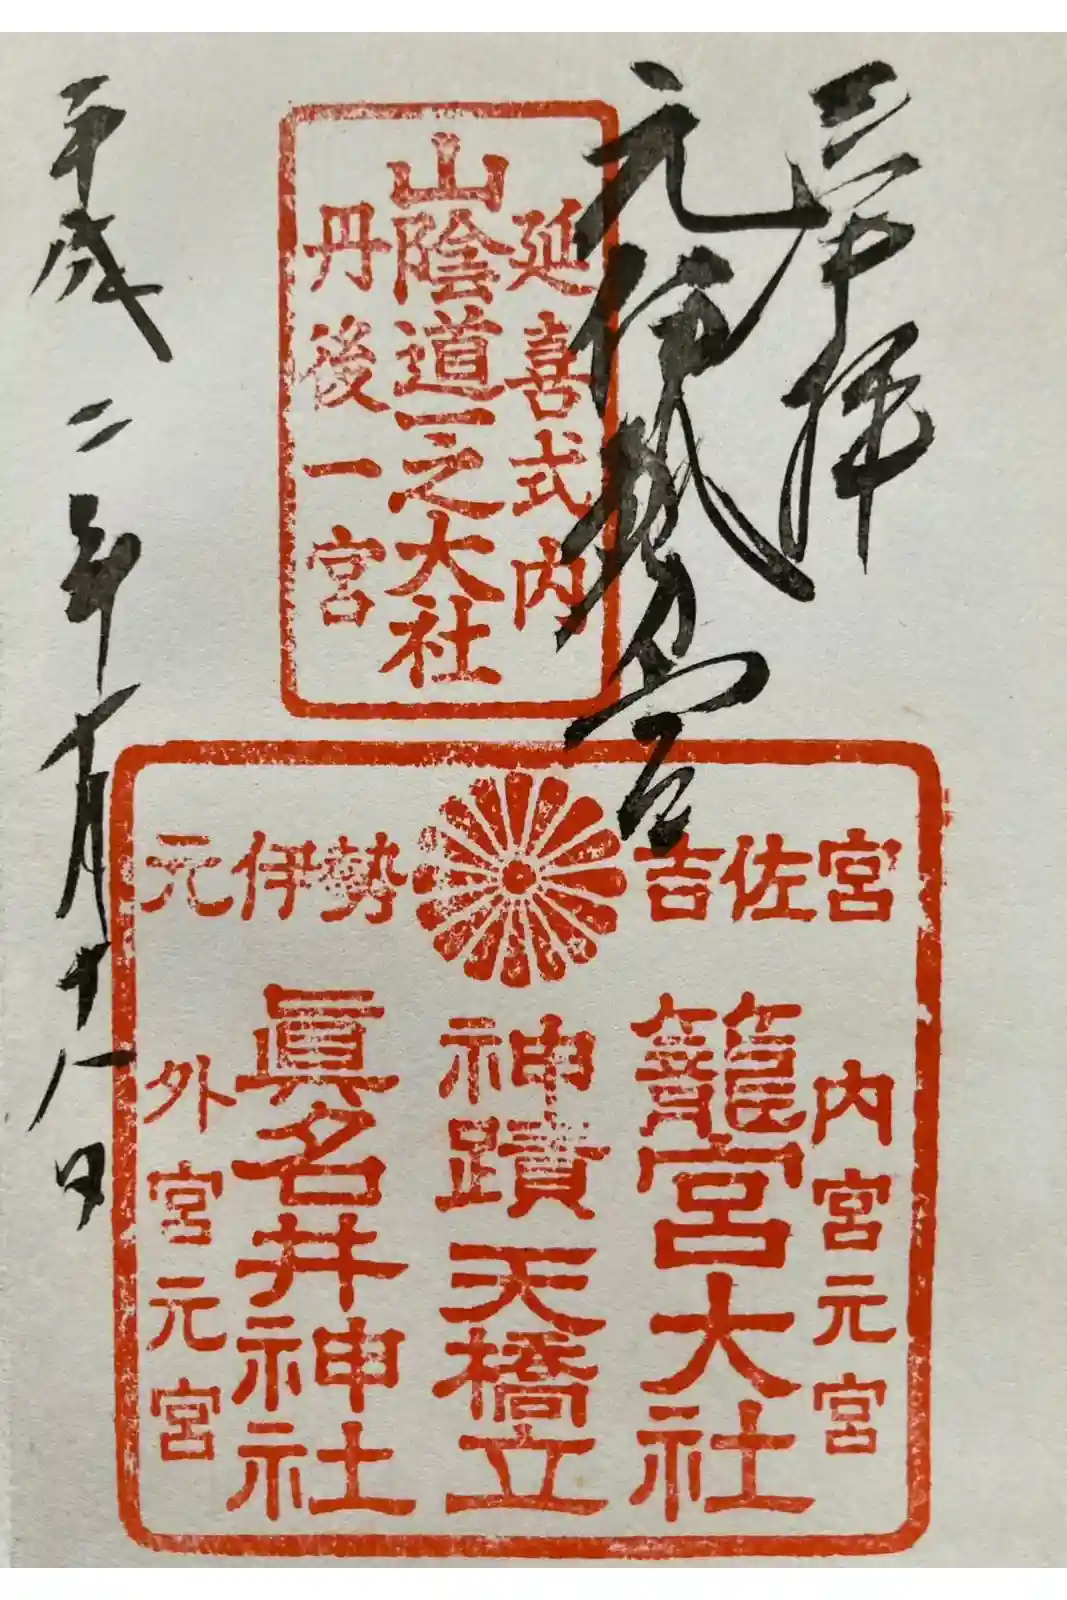 奉拝
元伊勢宮
延喜式内
山陰道一之大社
丹後一宮
元伊勢 吉佐宮
内宮元宮
籠宮大社
神蹟天橋立
眞名井神社
外宮元宮
平成二年十月十八日